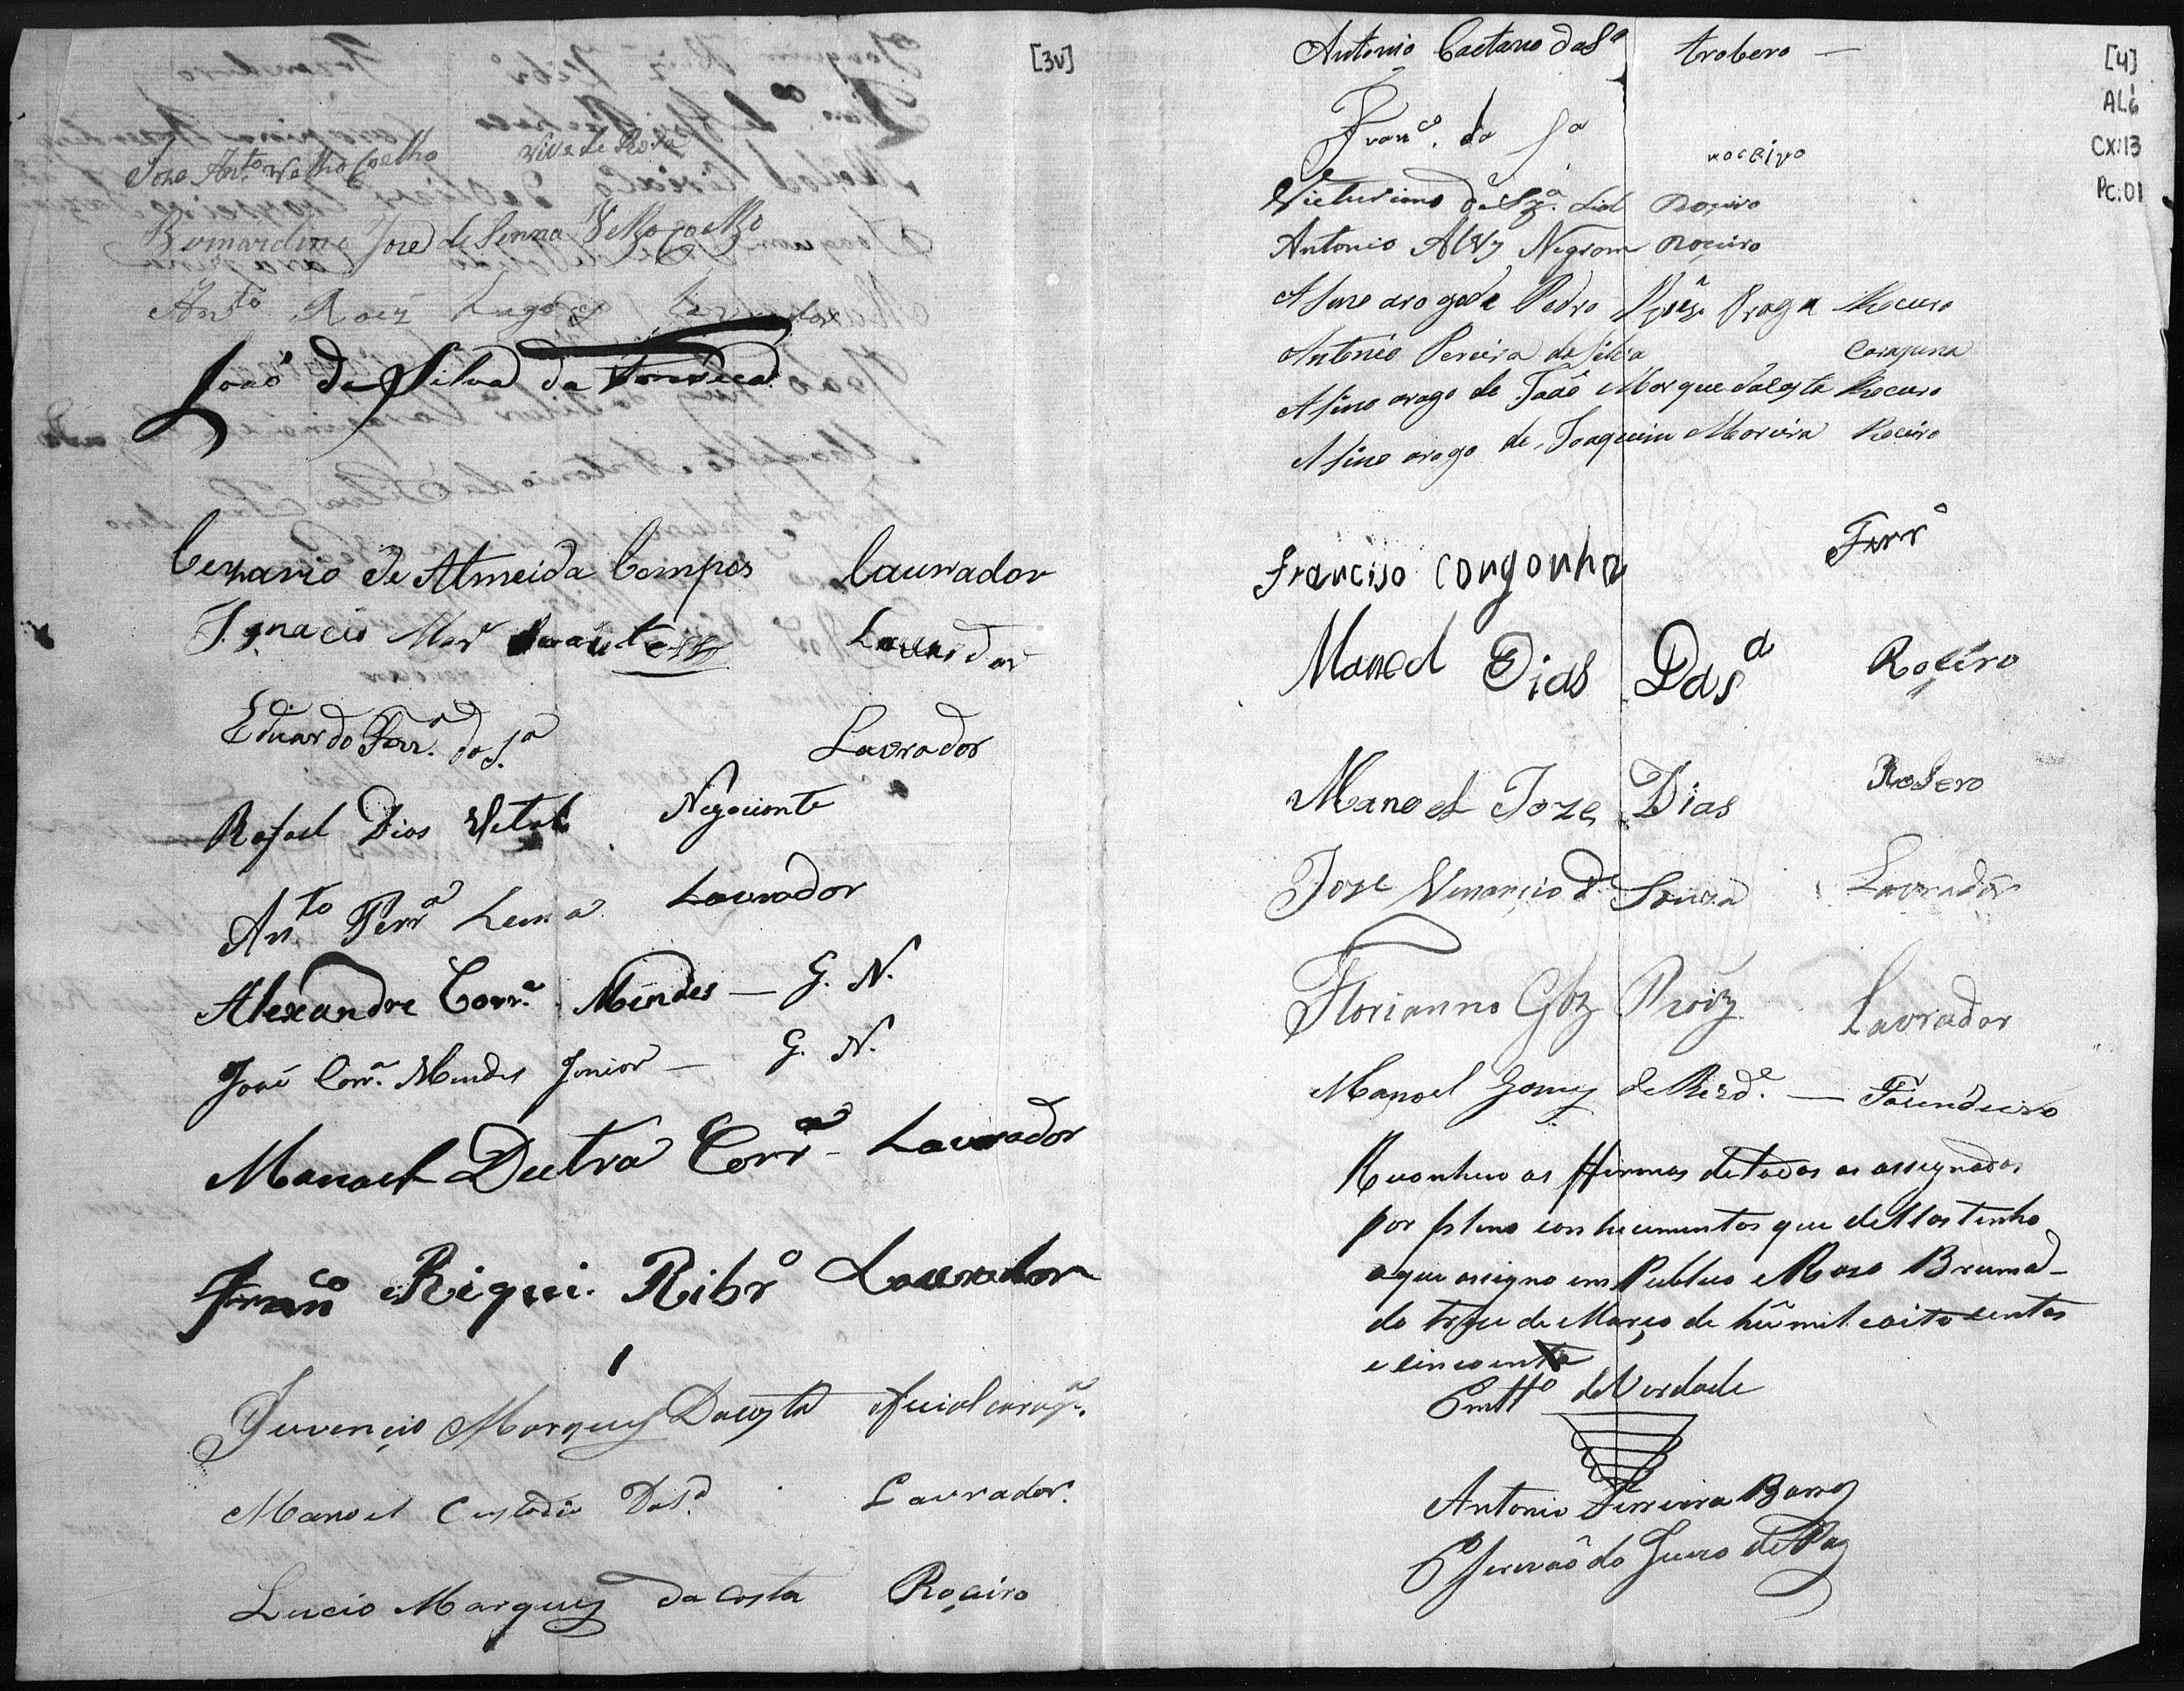 [3v]
Joze Ant.to Velho Coelho vive de Rosa
Bernardino Joze de Senna Velho Coelho
An.to Roiz
João da Silva da Fonseca
Cezario de Almeida Campos Laurador
Ignacio Laurador
Eduardo Ferr.a da S.a Lavrador
Rafael Dias Vital Negociante
An.to Ferr.a Lema Laurador
Alexandre Corr.a Mendes — G. N.
José Corr.a Mendes Junior — G. N.
Manoel Deutra Corr.a Laurador
Franco Riqui. Ribr.o Laurador
Juvencio Marques Dacosta oficial
Manoel Custodio Das.a Lavrador.
Lucio Marques da Costa Roçairo
[4]
AL6
CX:13
PC:01
Antonio Caetano da S.a trobero —
Fran.co da S.a roceiro
Victuriano de Sz.a Lial Roçeiro
Antonio Alvz Negrom Roceiro
Asino arogo de Pedro Braga Roceiro
Antonio Pereira da Silva Carapina
Asino arogo de João Marque dacosta Roceiro
Asino arogo de Joaquim Moreira Roceiro
franciso congonha Ferr.o
Manoel Dias Das.a Roçeiro
Manoel Joze Dias Rosero
Jose Venancio de Souza Lavrador
Florianno Glz Roiz Lavrador
Manoel Gomes de Rezd.e — Fasendeiro
Reconheco as Firmas detodos os assignados
por pleno conhecimentos que dellas tenho
oque assigno em Publico e Raso Bruma-
do treze de Março de hũ mil e oito centos
e sincoenta
Em tt.o deVerdade
Antonio Ferreira Barros
Escrivaõ do Juizo de Paz